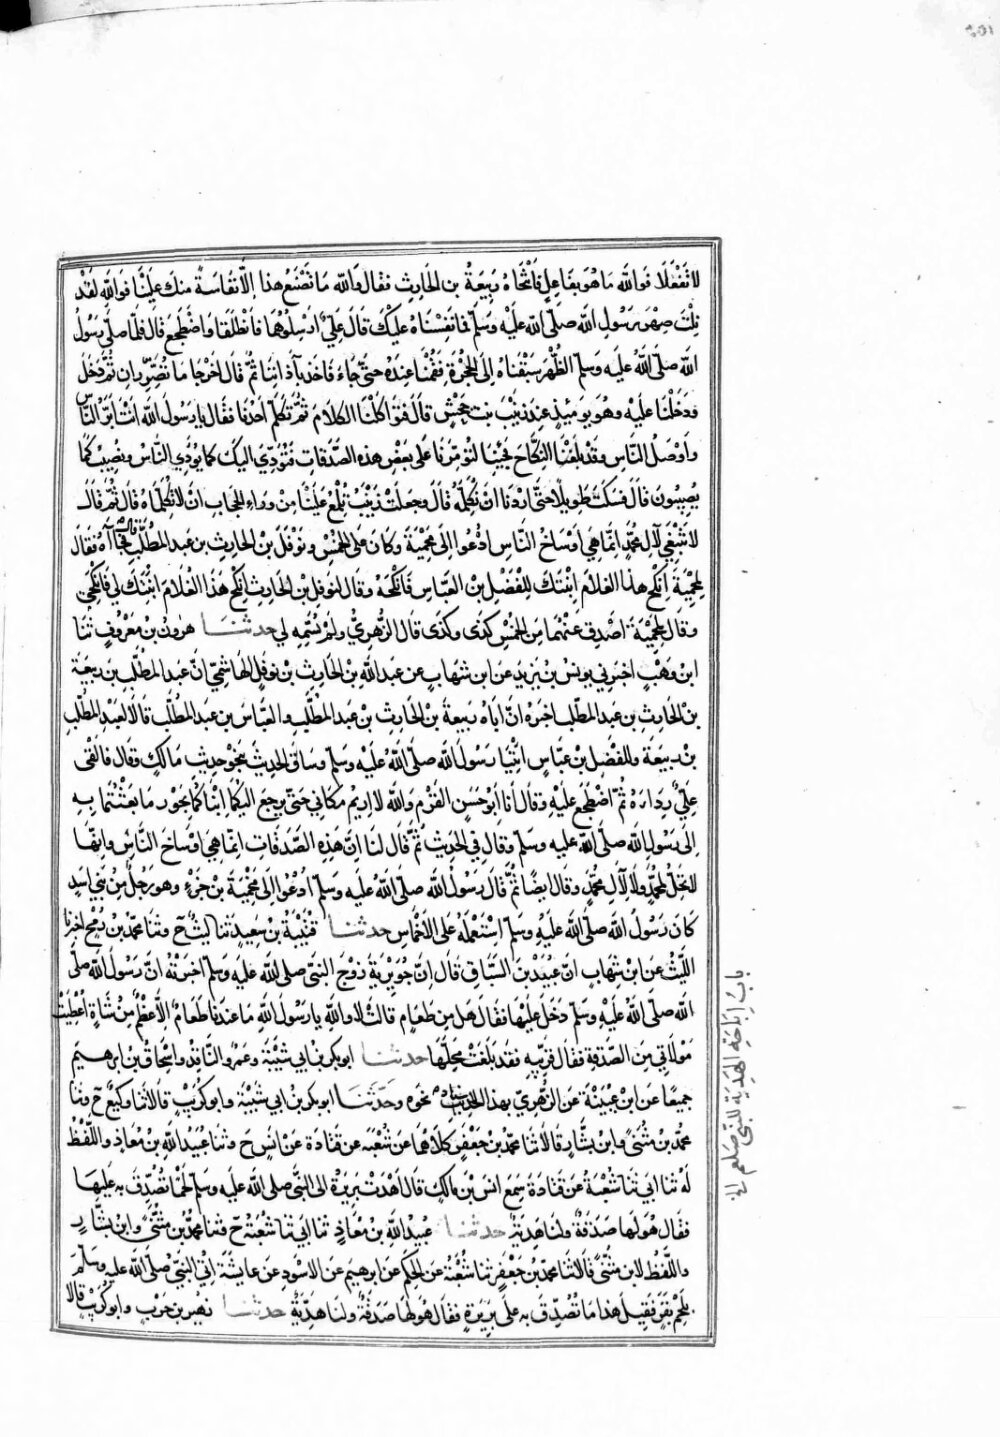 لا تَفْعَلا فوالله مَا هُوَ بفَاعِلٍ فَانْتَحَاهُ رَبِيعَةُ بن الحَارِثِ فقال والله مَا تَصْنَعُ هذا إلّا نَفَاسَةً منك عَلَيْنَا فوالله لقَدْ
نِلْتَ صِهْرَ رَسُولِ الله صلّى الله عَلَيْهِ وَسَلّم فمَا نَفِسْنَاهُ عليْكَ قَالَ عَلِيٌّ ارْسِلُوهُمَا فَانطلَقَا وَاضْطَجَعَ قال فلمّا صلّى رَسُولُ
الله صَلّى الله عَلَيهِ وَسَلّم الظُّهْرَ سَبَقْنَاهُ إلَى الحُجْرَةِ فَقُمْنَا عِندَهَا حتّى جَاءَ فَاخَذَ بآذَانِنَا ثُمَّ قَالَ اخْرِجَا مَا تُصَرِّرَانِ ثُمَّ دَخَلَ
فدَخَلْنَا عَلَيْهِ وهُوَ يَومَئِذٍ عِندَ زَيْنَبَ بنتِ جَحْشٍ قَالَ فَتَوَاكَلْنَا الكَلَامَ ثُمَّ تَكَلَّمَ احَدُنَا فقَالَ يا رَسُولَ الله انْتَ ابَرُّ النَّاسِ
وَاَوْصَلُ النَّاسِ وَقَدْ بَلَغْنَا النِّكَاحَ فَجِئْنَا لتُؤَمِّرَنَا عَلَى بَعْضِ هذِه الصَّدَقَاتِ فَنُؤَدِّي اليْكَ كمَا يُؤَدِّي النَّاسُ ونُصِيبَ كَمَا
يُصِيبُونَ قَالَ فسَكَتَ طَوِيلًا حتَّى ارَدْنَا انْ نُكَلِّمَهُ قَالَ وَجَعَلَتْ زَيْنَبُ تُلْمِعُ عَلَيْنَا مِنْ وَرَاءِ الحِجَابِ انْ لَا تُكَلِّمَاهُ قَالَ ثُمَّ قَالَ
لا تَنْبَغِي لآلِ مُحمَّدٍ انَّمَا هِيَ اوْسَاخُ النَّاسِ ادْعُوَا إلَى مَحْمِيَةَ وَكَانَ عَلَى الخُمْسِ وَنَوْفَلَ بْنَ الحَارِثِ بن عَبدِ المُطَّلِبِ قال فجَاآهُ فقَالَ
لِمَحْمِيَةَ انْكِحْ هذَا الغُلَامَ ابْنَتَكَ لِلْفَضْلِ بْنِ العَبَّاسِ فَانْكَحَهُ وقَالَ لِنَوْفَلِ بْنِ الحَارِثِ انْكِحْ هَذَا الغُلَامَ ابْنَتَكَ لِي فَانْكَحَنِي
وَقَالَ لِمَحْمِيَةَ اصْدِقْ عَنْهُمَا مِنَ الخُمْسِ كَذَى وكَذَى قَالَ الزُّهرِيُّ وَلمْ يُسَمِّهِ لِي حدثنا هرُونُ بنُ مَعْرُوفٍ ثنَا
ابْنُ وَهْبٍ اخبَرَنِي يُونُسُ بْنُ يَزِيدَ عَنِ ابنِ شهَابٍ عَن عَبدِ اللهِ بْنِ الحَارِثِ بْنِ نوفَلٍ الهَاشِمِيِّ انَّ عَبدَ المُطَّلِبِ بنَ رَبِيعَةَ
بْنِ الحَارِثِ بن عَبدِ المُطَّلِبِ اخبَرَهُ انَّ ابَاهُ رَبيعَةَ بْنَ الحَارِثِ بْنِ عَبدِ المُطَّلِبِ والعَبَّاسَ بنَ عَبدِ المُطَّلِبِ قَالَا لعَبدِ المُطَّلِبِ
بْنِ رَبِيعَةَ وللفَضْلِ بْنِ عبَّاسٍ ائْتِيَا رَسُولَ الله صلّى الله عَلَيْهِ وَسَلَّم وسَاقَ الحَدِيثَ بنَحْوِ حَدِيثِ مَالِكٍ وقَالَ فَالقَى
عَلِيٌّ رِدَاءَهُ ثُمَّ اضْطَجَعَ عَلَيْهِ وَقَالَ أنَا ابُو حَسَنٍ القَرْمُ وَالله لَا ارِيمُ مكَانِي حَتَّى يرجعَ اليْكمَا ابْنَاكُمَا بِحَوْرِ مَا بَعَثْتُمَا بِهِ
إلَى رَسُولِ الله صلّى الله عَلَيهِ وسَلّم وقَالَ في الحَدِيثِ ثُمَّ قَالَ لَنَا انَّ هَذِهِ الصَّدَقَاتِ انّمَا هِيَ اوْسَاخُ النَّاسِ وانّهَا
لا تَحِلُّ لمُحمَّدٍ وَلَا لِآلِ مُحمَّدٍ وقَالَ ايضًا ثُمَّ قَالَ رَسُولُ الله صلّى الله عَلَيهِ وسلّم ادْعُوَا لِي مَحْمِيَةَ بْنَ جَزْءٍ وهو رَجُلٌ مِنْ بَنِي اسَدٍ
كَانَ رَسُولُ الله صَلّى الله عَلَيْهِ وسَلّم اسْتَعْمَلَهُ عَلَى الاخْمَاسِ حدثنا قُتَيْبَةُ بنُ سَعِيدٍ ثنا ليثٌ ح وثَنَا محمّدُ بنُ رُمْحٍ اخبرنَا
اللَّيْثُ عَن ابنِ شِهَابٍ انَّ عُبَيْدَ بْنَ السَّبَّاقِ قَالَ إنَّ جُوَيْرِيَةَ زَوْجَ النَّبِيِّ صلى الله عَلَيهِ وسلّم اخبَرَتْهُ انَّ رَسُولَ الله صلّى
الله صلّى الله عَلَيْهِ وسَلّم دَخَلَ عَلَيْهَا فقَالَ هَل مِن طَعَامٍ قَالَتْ لا والله يا رَسُولَ الله مَا عندَنَا طَعَامٌ إلّا عَظْمٌ مِنْ شَاةٍ اُعْطِيَتْهُ
مَوْلَاتِي مِنَ الصَّدَقَةِ فقَالَ قَرِّبِيهِ فقَدْ بَلَغَتْ مَحِلَّهَا حدثنا ابُو بكرِ بنُ ابي شَيْبَةَ وعَمْرٌو النَّاقدُ واسْحَاقُ بنُ ابرهيم
جميعًا عَن ابنِ عُيَيْنَةَ عَنِ الزُّهْرِيِّ بهذَا الاسناد نحوَهُ وحَدَّثَنَا ابُو بكرِ بنُ ابي شَيْبَةَ وابُو كُرَيْبٍ قَالَا ثنا وَكِيعٌ ح وثنا
محمّدُ بنُ مثَنّىً وابنُ بشَّارٍ قَالَا ثنا محمّدُ بنُ جَعْفَرٍ كِلَاهُمَا عَن شُعْبَةَ عَن قتَادَةَ عَن انَسٍ ح وثنا عُبَيْدُ اللهِ بنُ مُعَاذٍ واللَّفْظُ
لَهُ ثنا ابي ثنا شُعْبَةُ عَن قَتَادَةَ سَمِعَ انَسَ بْنَ مالكٍ قَالَ اهْدَتْ بَرِيرَةُ الى النَّبيِّ صلى الله عَلَيهِ وسلّم لَحْمًا تُصُدِّقَ بِهِ عَلَيْهَا
فقَالَ هُوَ لَهَا صَدَقَةٌ ولَنَا هَدِيَّةٌ حدثنا عُبيدُ اللهِ بنُ مُعَاذٍ ثنَا ابي ثنا شُعْبَةُ ح وثنا محمّدُ بنُ مثَنّىً وابنُ بشّارٍ
واللَّفْظُ لابنِ مثنّىً قَالَا ثنا محمّدُ بنُ جَعْفَرٍ ثنا شُعْبَةُ عَنِ الحَكَمِ عَن ابرهيمَ عَنِ الاسْوَدِ عَن عايشَةَ اُتِيَ النَّبِيُّ صلّى الله عَلَيه وسلّم
بِلَحْمِ بَقَرٍ فَقِيلَ هَذا مَا تُصُدِّقَ بِهِ عَلَى بَرِيرَةَ فقَالَ هُوَ لَهَا صَدَقَةٌ ولنَا هَدِيَّةٌ حدثنا زهيرُ بنُ حَربٍ وابُو كُرَيْبٍ قَالَا
باب إباحة الهدية للنبي صلعم